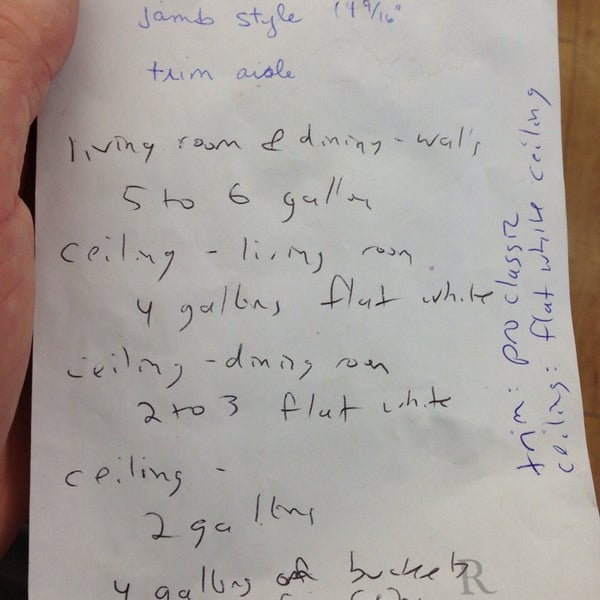 jamb style (4 9/16"
trim aisle
living room & dining - walls
5 to 6 gallon
ceiling - living room
4 gallons flat white
ceiling - dining room
2 to 3 flat white
ceiling -
2 gallons
4 gallons of buckets
R
trim: pro classic
ceiling: flat white ceiling